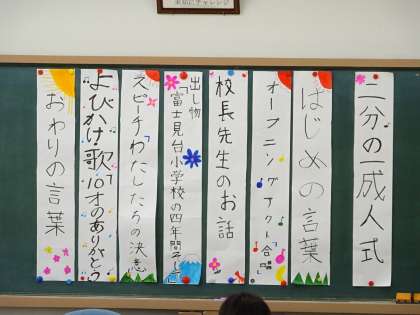 二分の一成人式
はじめの言葉
オープニングアクト「合唱」
校長先生のお話
出し物
「富士見台小学校の四年間そして」
スピーチ「わたしたちの決意」
よびかけ・歌「10才のありがとう」
おわりの言葉